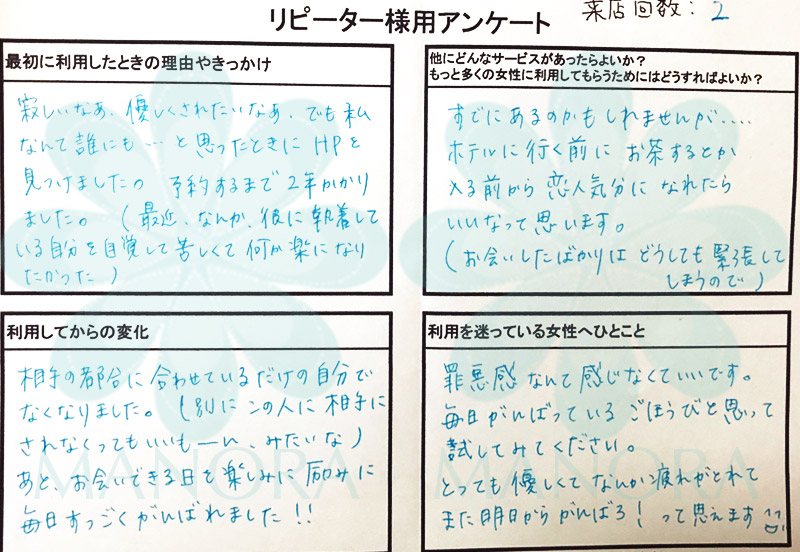 リピーター様用アンケート
来店回数：2
最初に利用したときの理由やきっかけ
寂しいなあ、優しくされたいなあ、でも私
なんて誰にも…と思ったときにHPを
見つけました。予約するまで2年かかり
ました。（最近、なんか、彼に執着して
いる自分を自覚して苦しくて何か楽になり
たかった）
他にどんなサービスがあったらよいか？
もっと多くの女性に利用してもらうためにはどうすればよいか？
すでにあるのかもしれませんが....
ホテルに行く前にお茶するとか
入る前から恋人気分になれたら
いいなって思います。
（お会いしたばかりはどうしても緊張して
しまうので）
利用してからの変化
相手の都合に合わせているだけの自分で
なくなりました。（別にこの人に相手に
されなくってもいいもーん、みたいな）
あと、お会いできる日を楽しみに励みに
毎日すっごくがんばれました！！
利用を迷っている女性へひとこと
罪悪感なんて感じなくていいです。
毎日がんばっているごほうびと思って
試してみてください。
とっても優しくてなんか疲れがとれて
また明日からがんばろ！って思えます
MANORA